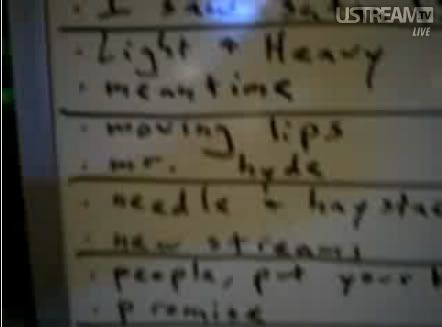 USTREAM TV
LIVE
· I saw
· Light + Heavy
· meantime
· moving lips
· mr. hyde
· needle + haystac
· new streams
· people, put your
· promise